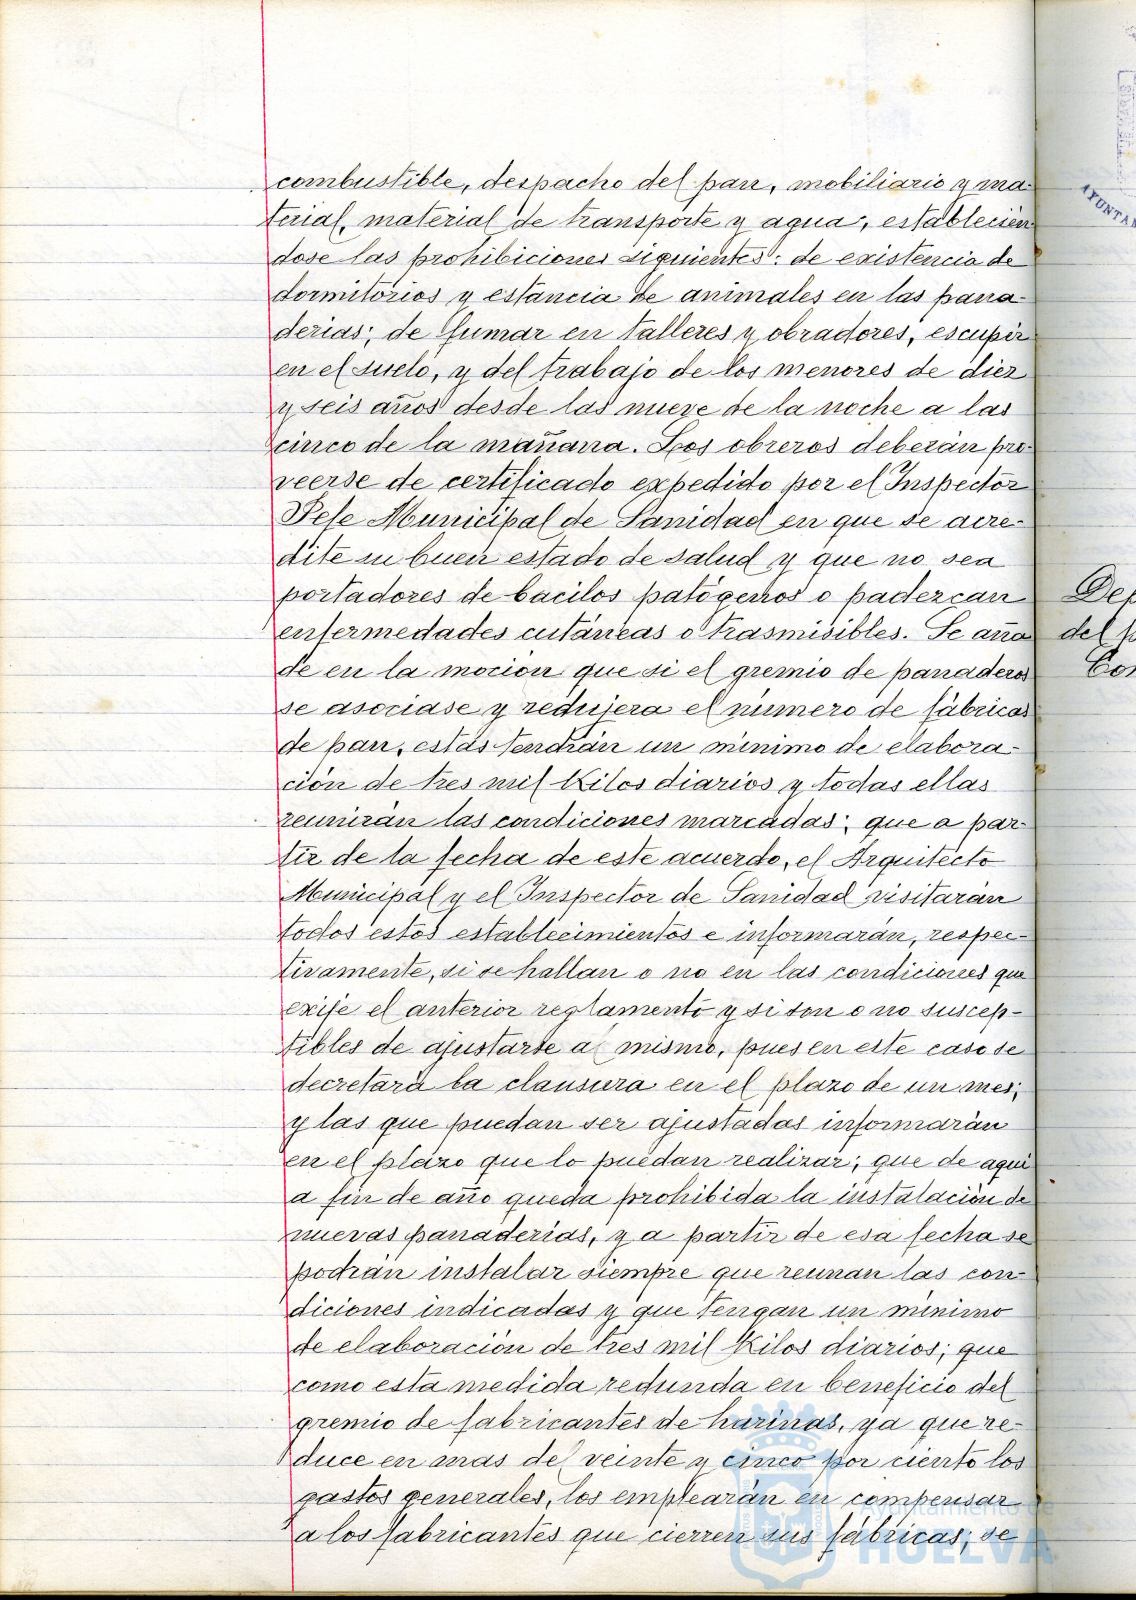 combustible, despacho del pan, mobiliario y ma-
terial, material de transporte y agua, establecién
dose las prohibiciones siguientes: de existencia de
dormitorios y estancia de animales en las pana-
derias; de fumar en talleres y obradores, escupir
en el suelo, y del trabajo de los menores de diez
y seis años desde las nueve de la noche a las
cinco de la mañana. Los obreros deberán pro-
veerse de certificado expedido por el Inspector
Jefe Municipal de Sanidad en que se acre-
dite su buen estado de salud y que no sea
portadores de bacilos patógenos o padezcan
enfermedades cutáneas o trasmisibles. Se aña
de en la moción que si el gremio de panaderos
se asociase y redujera el número de fábricas
de pan, estas tendrán un mínimo de elabora-
ción de tres mil Kilos diarios y todas ellas
reunirán las condiciones marcadas; que a par-
tir de la fecha de este acuerdo, el Arquitecto
Municipal y el Inspector de Sanidad visitarán
todos estos establecimientos e informarán, respec-
tivamente, si se hallan o no en las condiciones que
exije el anterior reglamento y si son o no suscep-
tibles de ajustarse al mismo, pues en este caso se
decretará la clausura en el plazo de un mes;
y las que puedan ser ajustadas informarán
en el plazo que lo puedan realizar; que de aqui
a fin de año queda prohibida la instalación de
nuevas panaderias, y a partir de esa fecha se
podrán instalar siempre que reunan las con-
diciones indicadas y que tengan un mínimo
de elaboración de tres mil Kilos diarios; que
como esta medida redunda en beneficio del
gremio de fabricantes de harinas, ya que re-
duce en mas del veinte y cinco por ciento los
gastos generales, los emplearán en compensar
a los fabricantes que cierren sus fábricas; se
Dep
del p
Con
AYUNTA
Ayuntamiento de
HUELVA